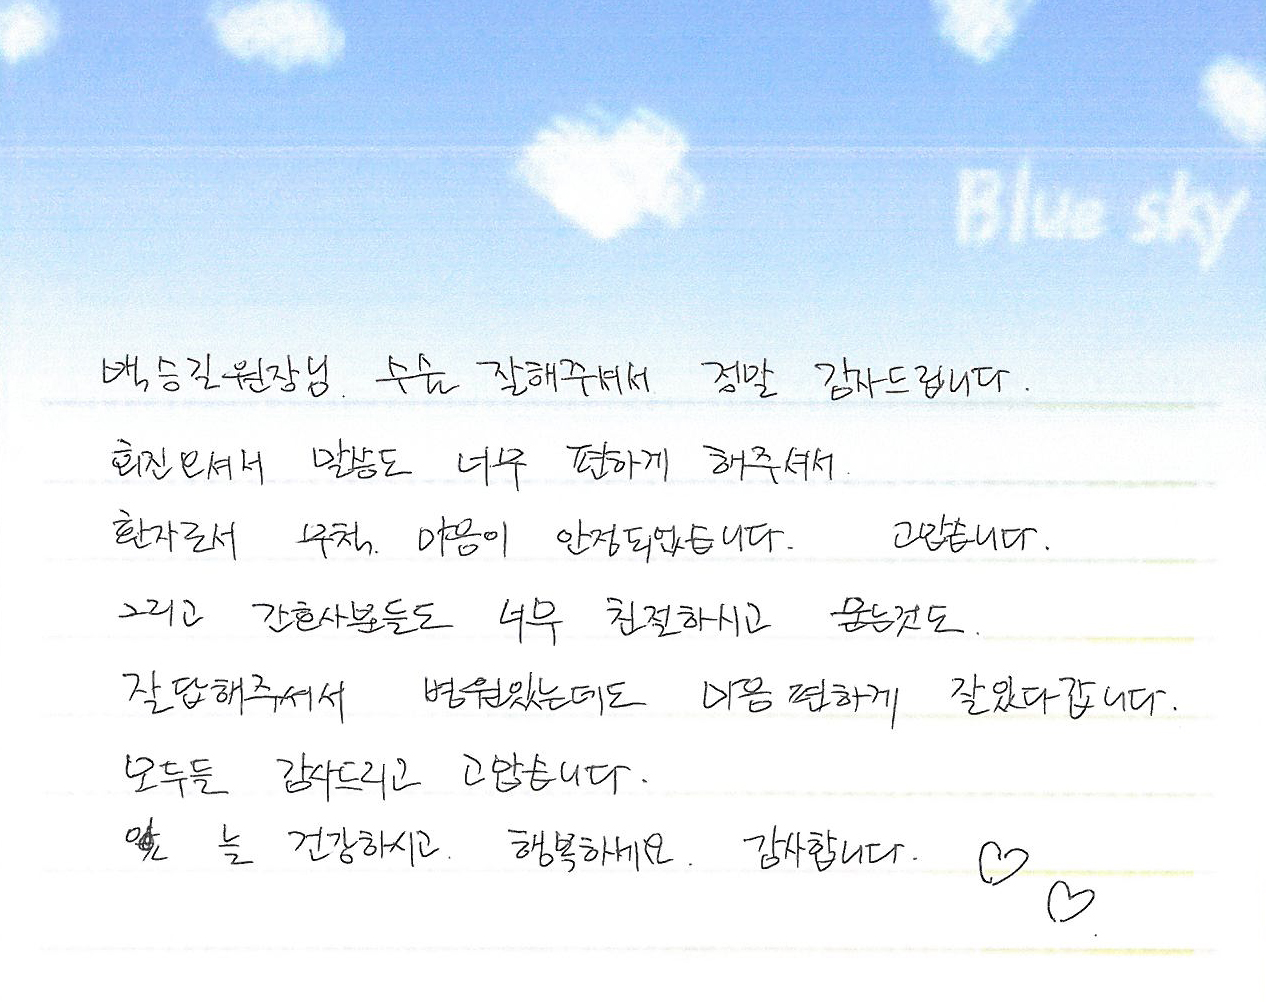 Blue sky
백승길원장님. 수술 잘해주셔서 정말 감사드립니다.
회진오셔서 말씀도 너무 편하게 해주셔서.
환자로서 무척. 마음이 안정되었습니다. 고맙습니다.
그리고 간호사분들도 너무 친절하시고 묻는것도.
잘답해주셔서 병원있는데도 마음편하게 잘있다갑니다.
모두들 감사드리고 고맙습니다.
늘 건강하시고. 행복하세요. 감사합니다.